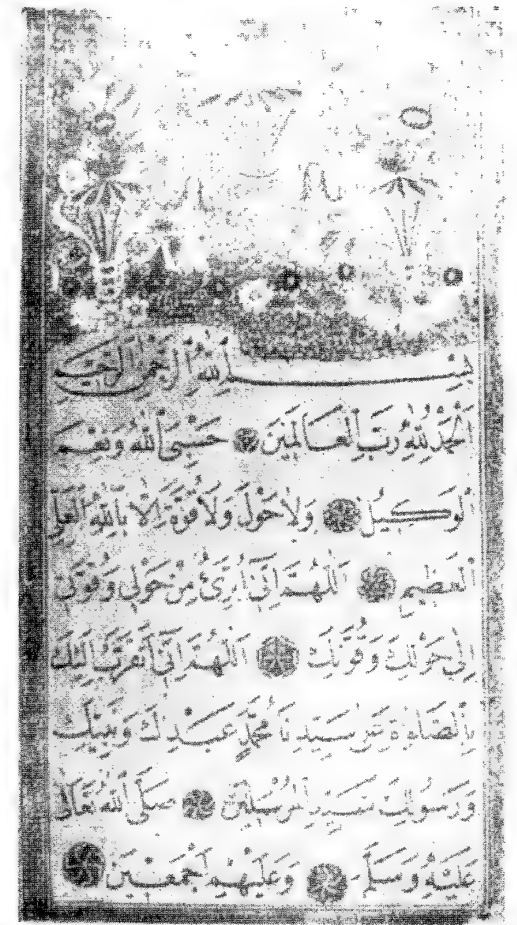 بِسْمِ اللهِ الرَّحْمٰنِ الرَّحِيمِ
اَلْحَمْدُ لِلّٰهِ رَبِّ الْعَالَمِينَ حَسْبِيَ اللهُ وَنِعْمَ
الْوَكِيلُ وَلَا حَوْلَ وَلَا قُوَّةَ اِلَّا بِاللهِ الْعَلِيِّ
الْعَظِيمِ اَللّٰهُمَّ اِنِّي اَبْرَئُ مِنْ حَوْلِي وَقُوَّتِي
اِلٰى حَوْلِكَ وَقُوَّتِكَ اَللّٰهُمَّ اِنِّي اَتَقَرَّبُ اِلَيْكَ
بِالصَّلٰوةِ عَلٰى سَيِّدِنَا مُحَمَّدٍ عَبْدِكَ وَنَبِيِّكَ
وَرَسُولِكَ سَيِّدِ الْمُرْسَلِينَ صَلَّى اللهُ تَعَالٰى
عَلَيْهِ وَسَلَّمَ وَعَلَيْهِمْ اَجْمَعِينَ